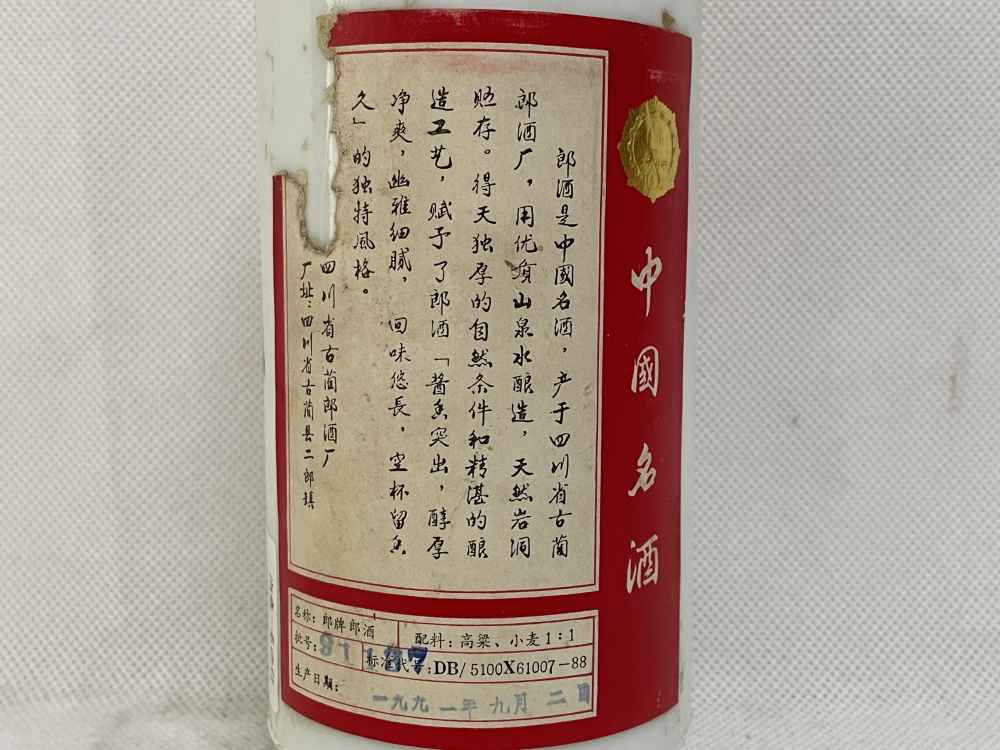 中國名酒
郎酒是中國名酒，产于四川省古蔺
郎酒厂，用优质山泉水酿造，天然岩洞
贮存。得天独厚的自然条件和精湛的酿
造工艺，赋予了郎酒「酱香突出，醇厚
净爽，幽雅细腻，回味悠長，空杯留香
久」的独特風格。
四川省古蔺郎酒厂
厂址：四川省古蔺县二郎镇
名称：郎牌郎酒
配料：高粱、小麦1：1
批号：91
标准代号：DB/5100X61007-88
生产日期：一九九一年九月二日